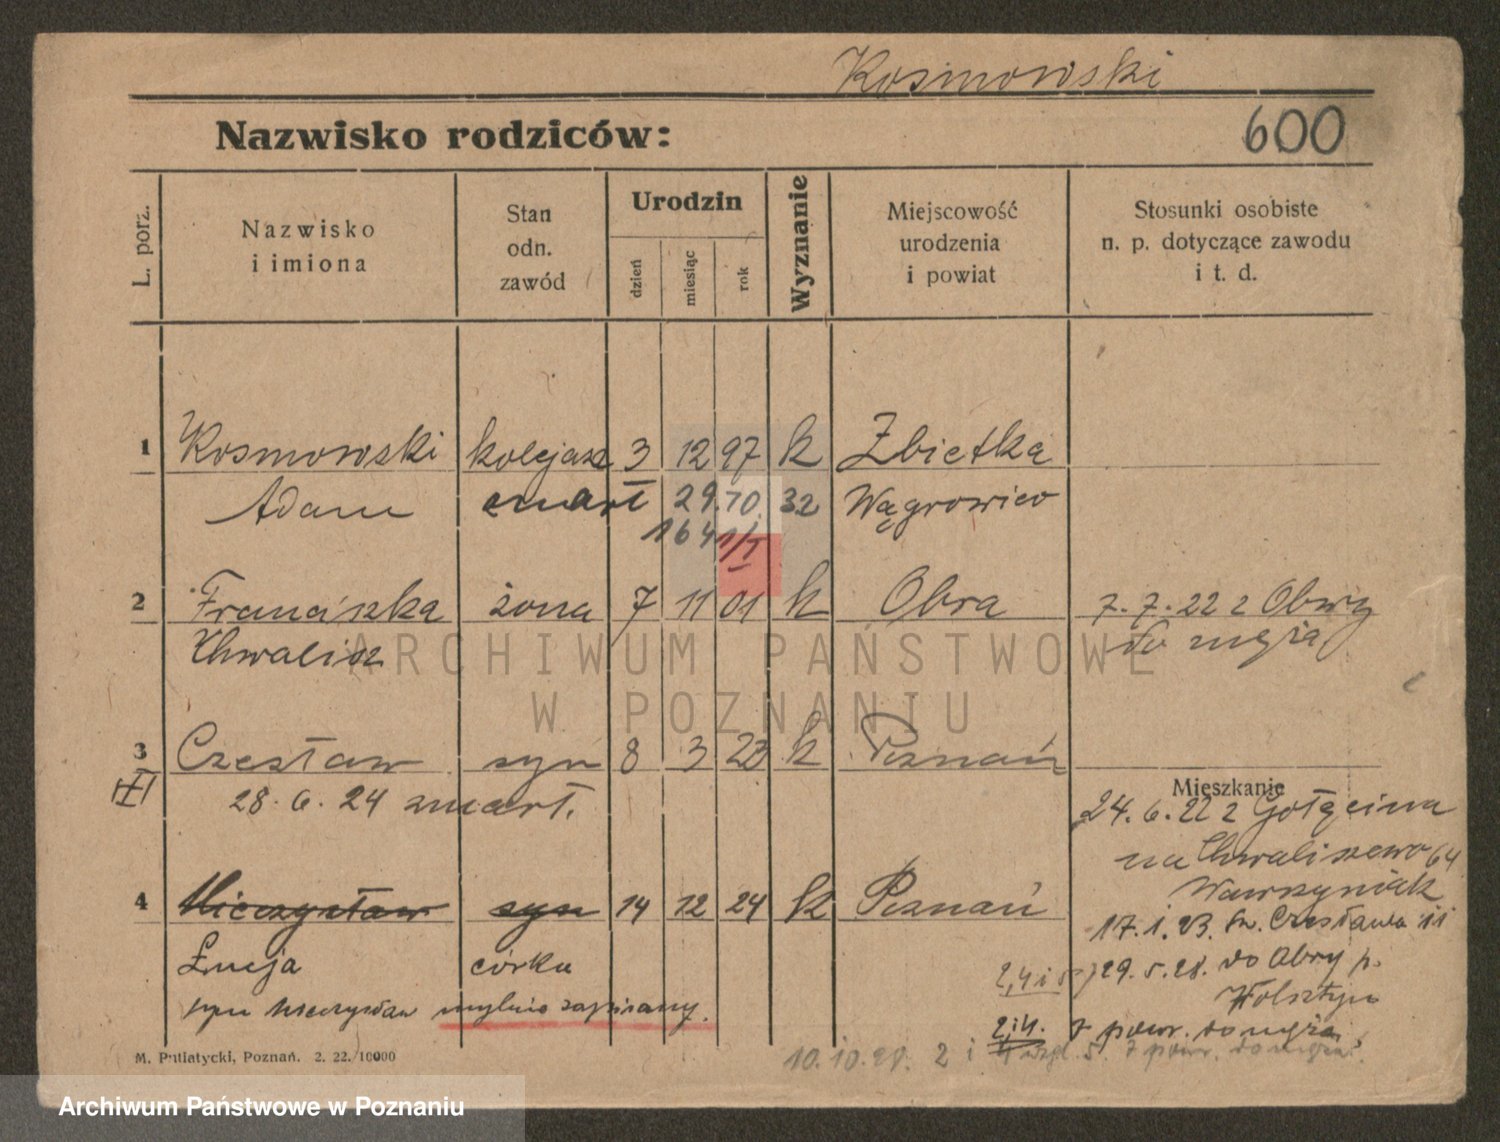 Kosmowski
Nazwisko rodziców:
600
L. porz.
Nazwisko
i imiona
Stan
odn.
zawód
Urodzin
dzień
miesiąc
rok
Wyznanie
Miejscowość
urodzenia
i powiat
Stosunki osobiste
n. p. dotyczące zawodu
i t. d.
1 Kosmowski kolejarz 3 12 97 k Zbietka
Adam zmarł 29.10.32 Wągrowiec
1641/I
2 Franciszka żona 7 11 01 k Obra 7.7.22 z Obry
Chwalisz do męża
ARCHIWUM PAŃSTWOWE
W POZNANIU
3 Czesław syn 8 3 23 k Poznań
28.6.24 zmarł.
Mieszkanie
24.6.22 z Gołęcina
na Chwaliszewo 64
Wawrzyniak
4 Mieczysław syn 14 12 24 k Poznań
17.1.23. Św. Czesława 11
Łucja córka
2,4 i 5) 29.5.28. do Obry p.
Wolsztyn
syn Mieczysław mylnie zapisany.
2 i 4. powr. do męża
10.10.28. 2 i 4 powr. do męża
M. Putiatycki, Poznań. 2. 22. 10000
Archiwum Państwowe w Poznaniu